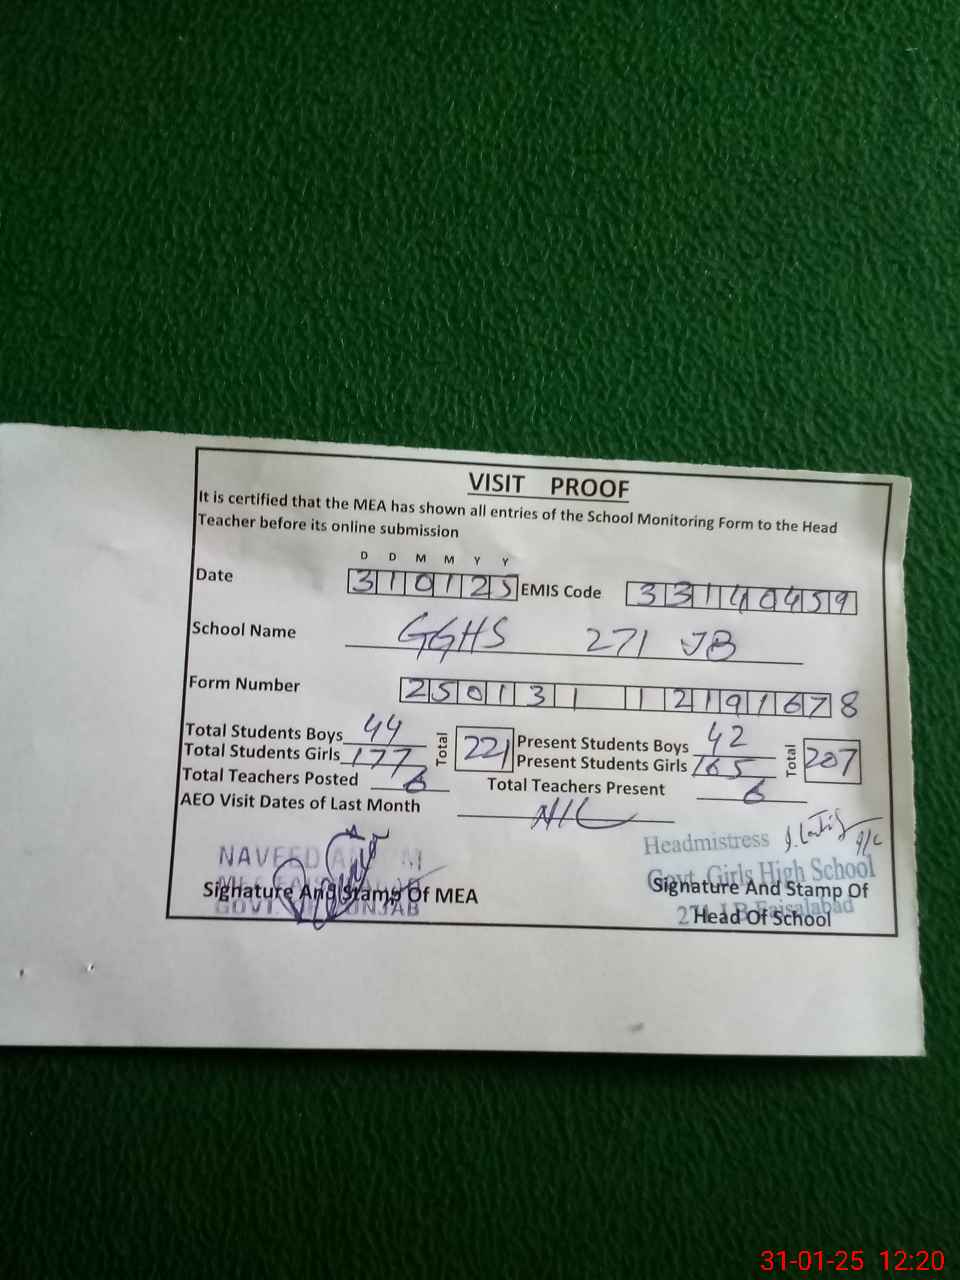 VISIT PROOF
It is certified that the MEA has shown all entries of the School Monitoring Form to the Head
Teacher before its online submission
D D M M Y Y
Date 310125 EMIS Code 33140459
School Name GGHS 271 JB
Form Number 250131 12191678
Total Students Boys 44 Total 221 Present Students Boys 42 Total 207
Total Students Girls 177 Present Students Girls 165
Total Teachers Posted 6 Total Teachers Present 6
AEO Visit Dates of Last Month NIL
NAVEED
GOVT.
Signature And Stamp Of MEA
Headmistress I/C
Govt. Girls High School
271 J.B Faisalabad
Signature And Stamp Of
Head Of School
31-01-25 12:20